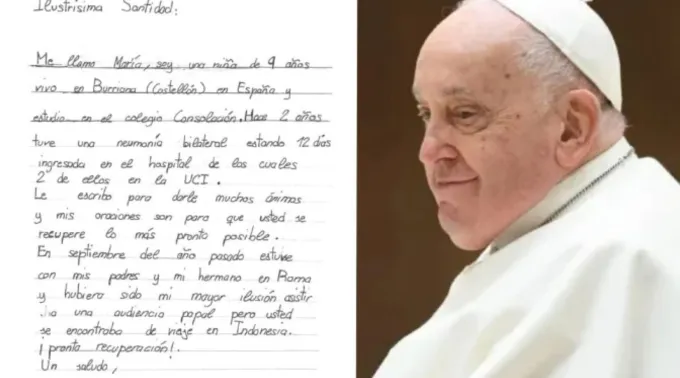 Ilustrísima Santidad:
Me llamo María, soy una niña de 9 años
vivo en Burriana (Castellón) en España y
estudio en el colegio Consolación. Hace 2 años
tuve una neumonía bilateral estando 12 días
ingresada en el hospital de los cuales
2 de ellos en la UCI.
Le escribo para darle muchos ánimos
y mis oraciones son para que usted se
recupere lo más pronto posible.
En septiembre del año pasado estuve
con mis padres y mi hermano en Roma
y hubiera sido mi mayor ilusión asistir
a una audiencia papal pero usted
se encontraba de viaje en Indonesia.
¡pronta recuperación!.
Un saludo,